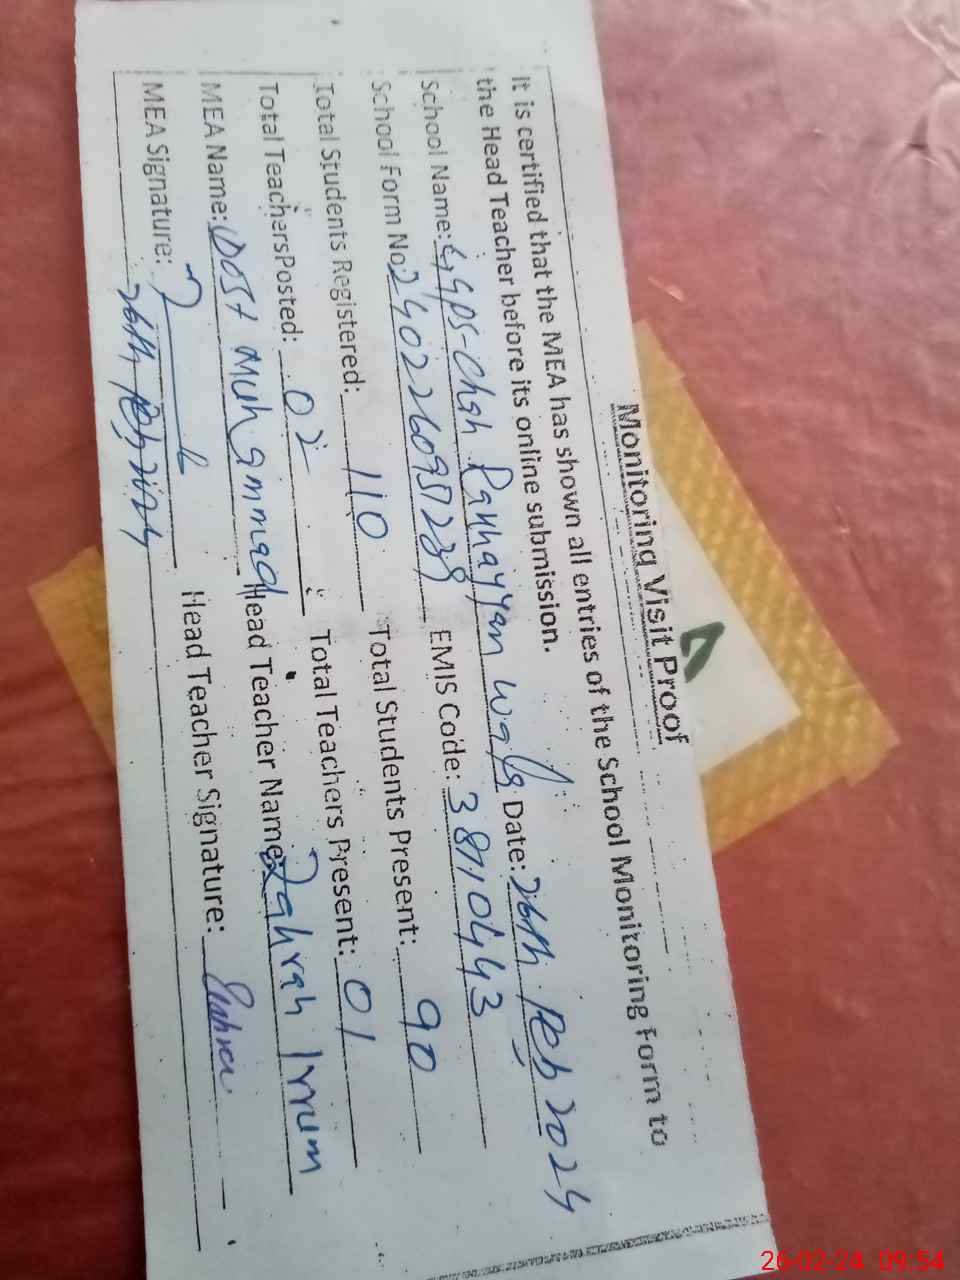 Monitoring Visit Proof
It is certified that the MEA has shown all entries of the School Monitoring Form to
the Head Teacher before its online submission.
School Name: GGPS-Chah Panhayan wala Date: 26th Feb 2024
School Form No: EMIS Code: 38710443
Total Students Registered: 110 Total Students Present: 90
Total Teachers Posted: 02 Total Teachers Present: 01
MEA Name: Dost Muhammad Head Teacher Name: Zahrah Irrum
MEA Signature: Head Teacher Signature:
26th Feb 2024
26-02-24 09:54